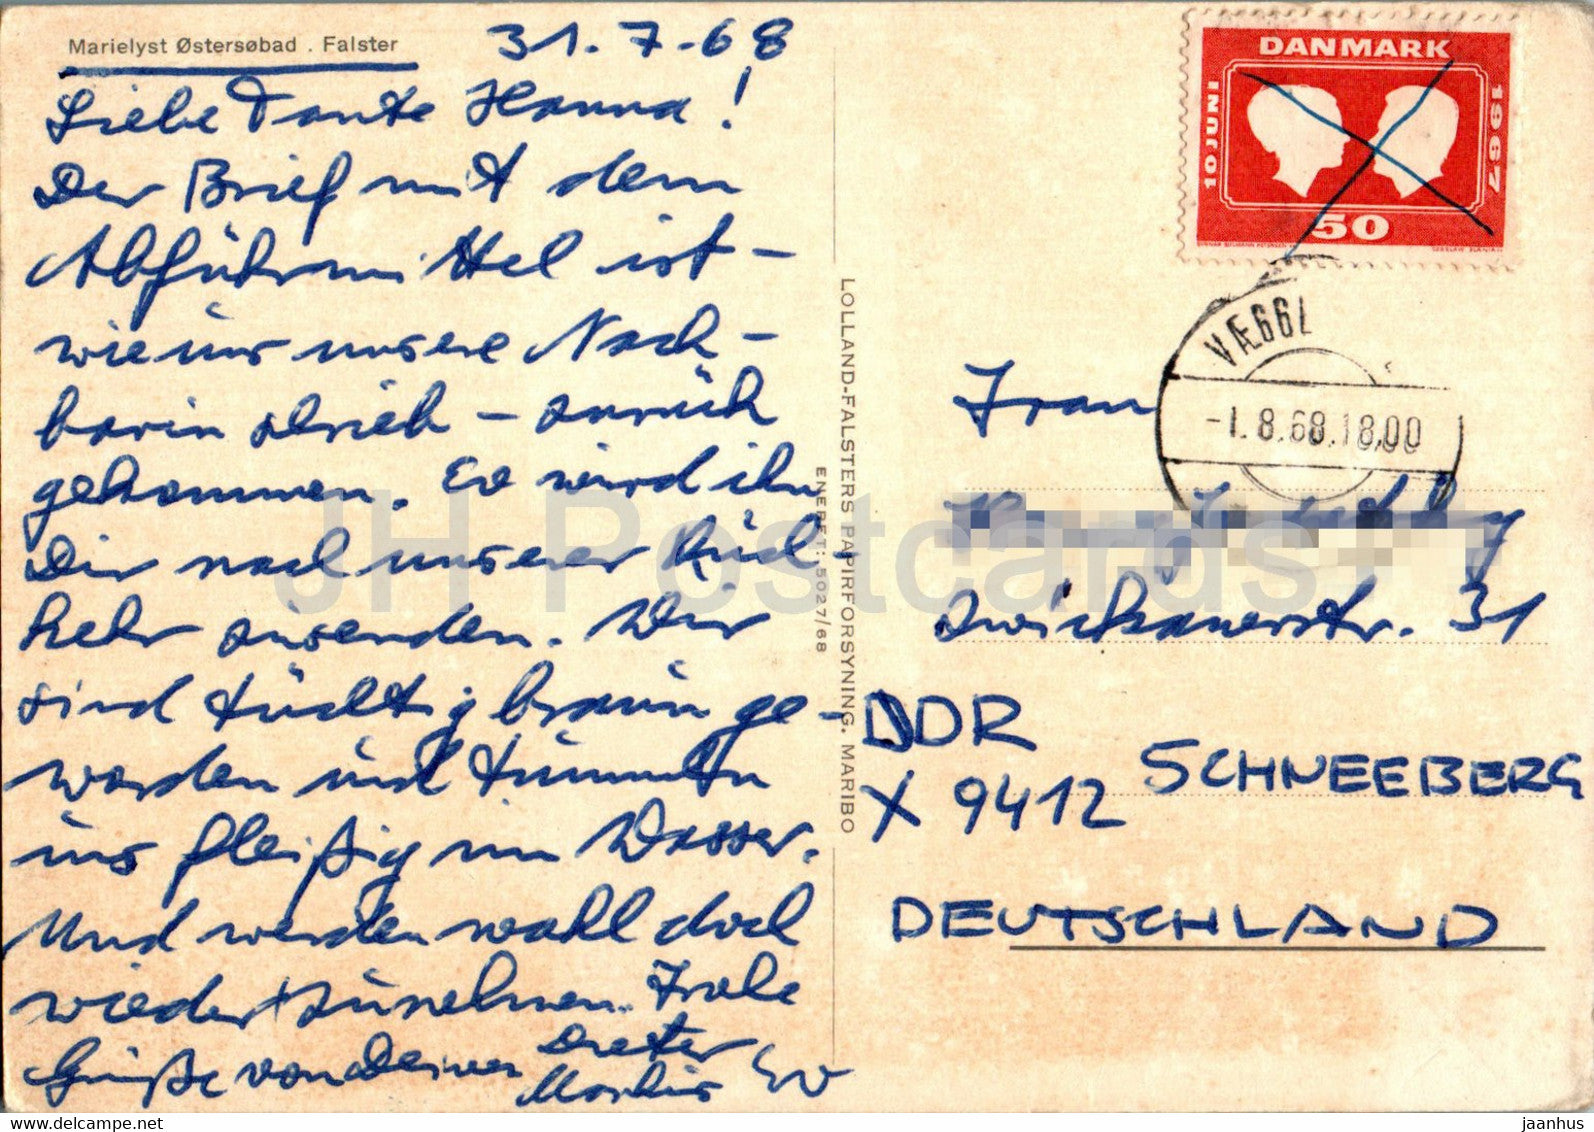 Marielyst Østersøbad . Falster
31.7.68
Liebe Tante Hanna!
Der Brief mit dem
Abführmittel ist –
wie uns unsere Nach-
barin schrieb – zurück
gekommen. Ev wird ihn
Dir nach unserer Rück-
kehr zusenden. Wir
sind tüchtig braun ge-
worden und tummeln
uns fleißig im Wasser.
Und werden wohl doch
wieder zunehmen. Frohe
Grüße von Deinen Dieter
Markus Ev
LOLLAND-FALSTERS PAPIRFORSYNING. MARIBO
ENERET: 5027/68
DANMARK
10 JUNI
1967
50
VÆGGL
-1.8.68.18,00
Frau
Zwickauerstr. 31
DDR
X 9412 SCHNEEBERG
DEUTSCHLAND
JH Postcards
jaanhus
www.delcampe.net